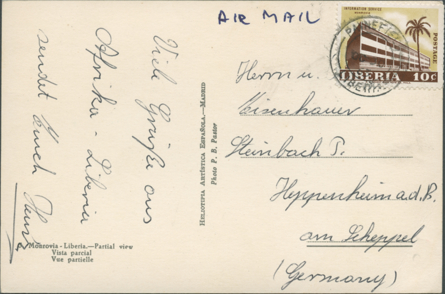 AIR MAIL
INFORMATION SERVICE
MONROVIA
POSTAGE
LIBERIA 10¢
Viele Grüße aus
Afrika - Liberia
sendet Euch
Monrovia - Liberia.—Partial view
Vista parcial
Vue partielle
HELIOTIPIA ARTÍSTICA ESPAÑOLA.—MADRID
Photo P. B. Pastor
Herrn u.
Eisenhauer
Steinbach
Heppenheim a.d.B.
am Scheppel
(Germany)